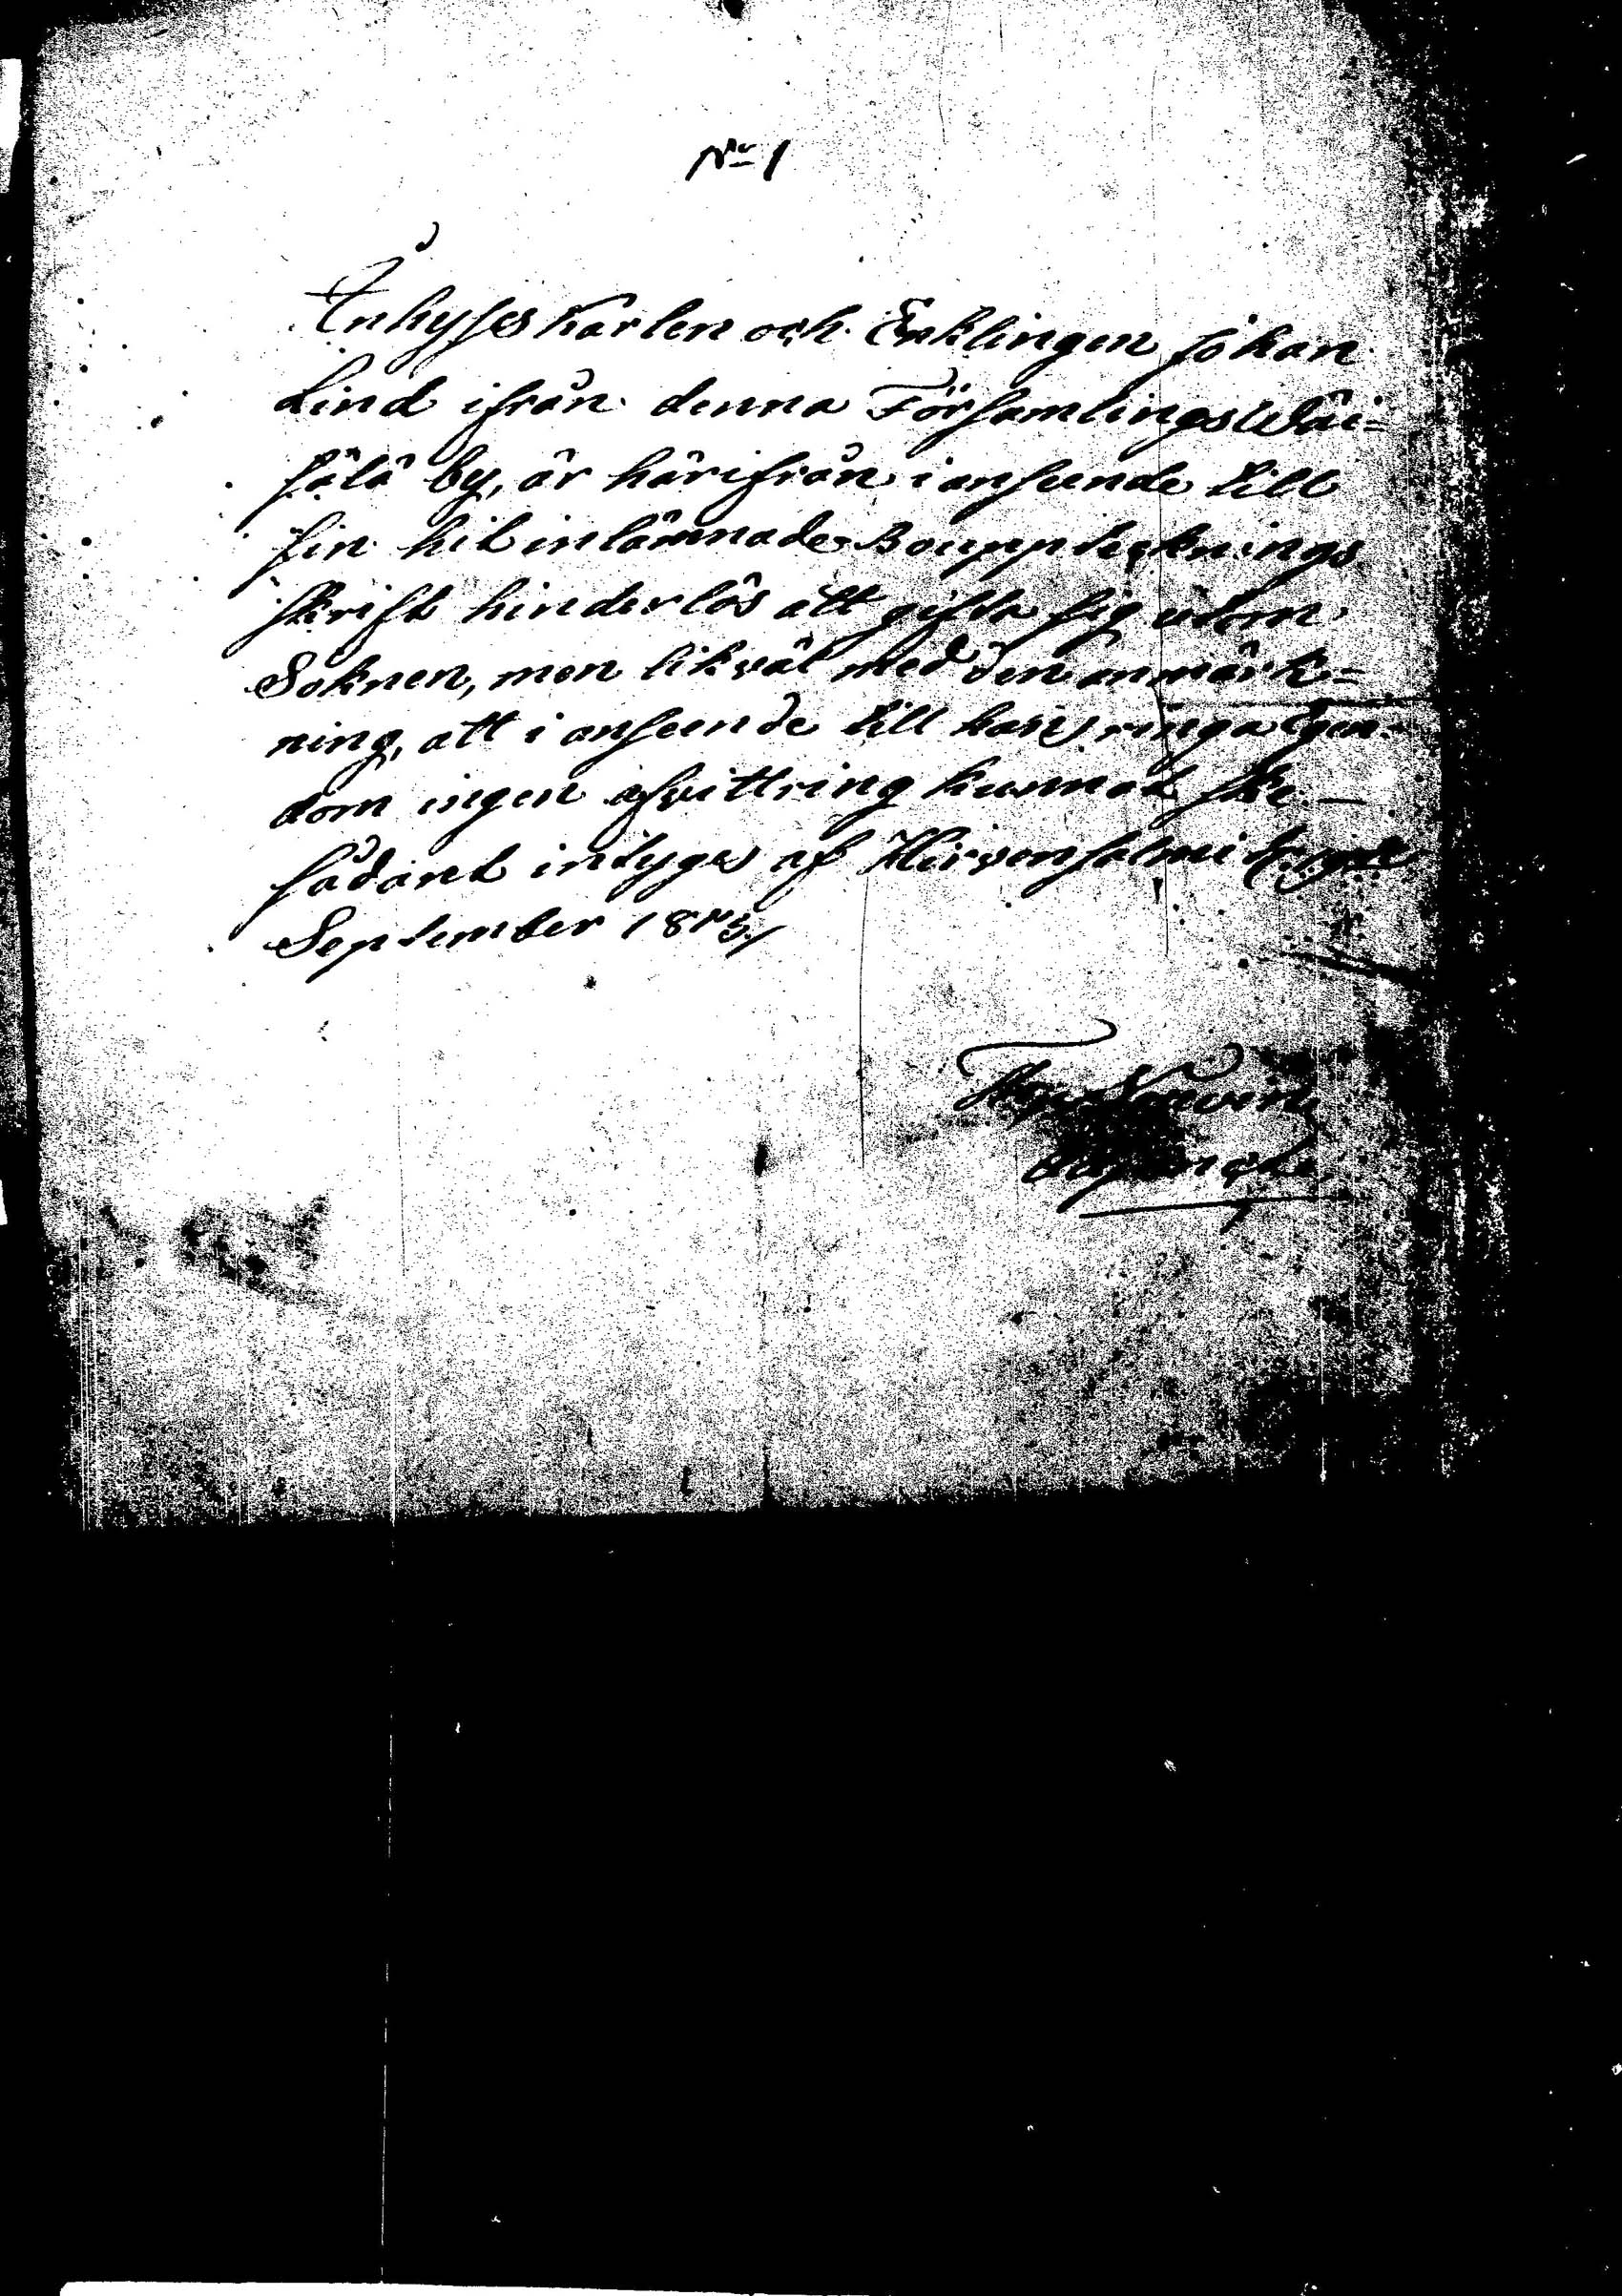 No 1
Inhyses Karlen och Enklingen Johan
Lind ifrån denna Församlings Wäi-
sälä by, är härifrån i anseende till
sin hit inlämnade Boupptecknings
skrift hinderlös att gifta sig utom
Soknen, men likväl med den anmärk-
ning, att i anseende till hans ringa Egen-
dom ingen afvittring kunnat ske. —
sådant intygar af Hirvensalmi
September 1843.